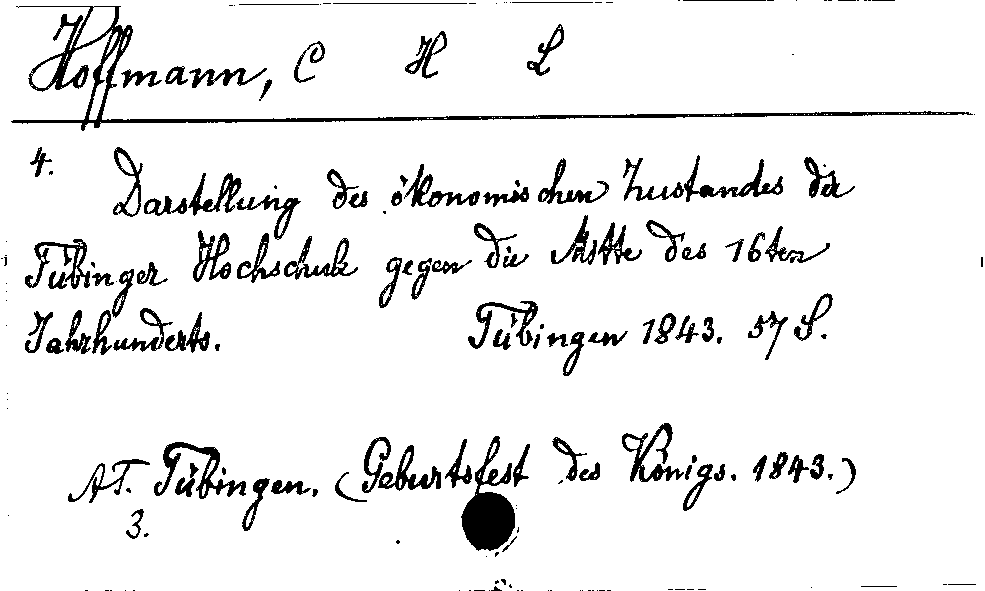 Hoffmann, C H L
4. Darstellung des ökonomischen Zustandes der
Tübinger Hochschule gegen die Mitte des 16ten
Jahrhunderts. Tübingen 1843. 57 S.
AT. Tübingen. (Geburtsfest des Königs. 1843.)
3.